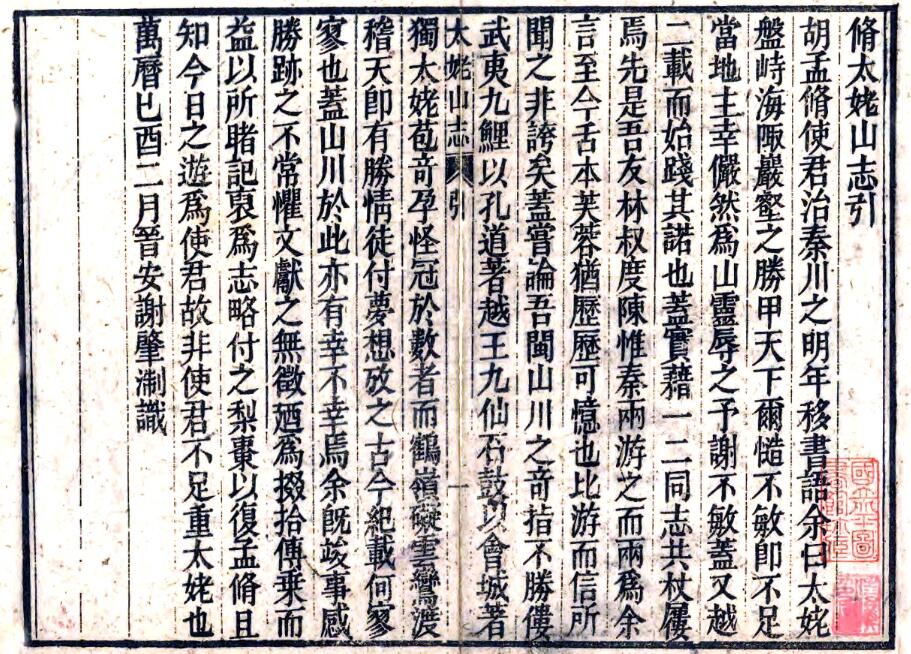 脩太姥山志引
胡孟脩使君治秦川之明年移書語余曰太姥
盤峙海陬巖壑之勝甲天下爾慥不敏即不足
當地主幸儼然爲山靈辱之予謝不敏蓋又越
二載而始踐其諾也蓋實藉一二同志共杖屨
焉先是吾友林叔度陳惟秦兩游之而兩爲余
言至今舌本芙蓉猶歷歷可憶也比游而信所
聞之非誇矣蓋嘗論吾閩山川之竒指不勝僂
武夷九鯉以孔道著越王九仙石鼓以會城著
太姥山志 引 一
獨太姥苞竒孕怪冠於數者而鶴嶺礙雲鸞渡
稽天即有勝情徒付夢想放之古今紀載何寥
寥也蓋山川於此亦有幸不幸焉余既竣事感
勝跡之不常懼文獻之無徵廼爲掇拾傳乗而
益以所睹記裒爲志略付之梨棗以復孟脩且
知今日之遊爲使君故非使君不足重太姥也
萬曆己酉二月晉安謝肇淛識
國立北平圖
書館收藏